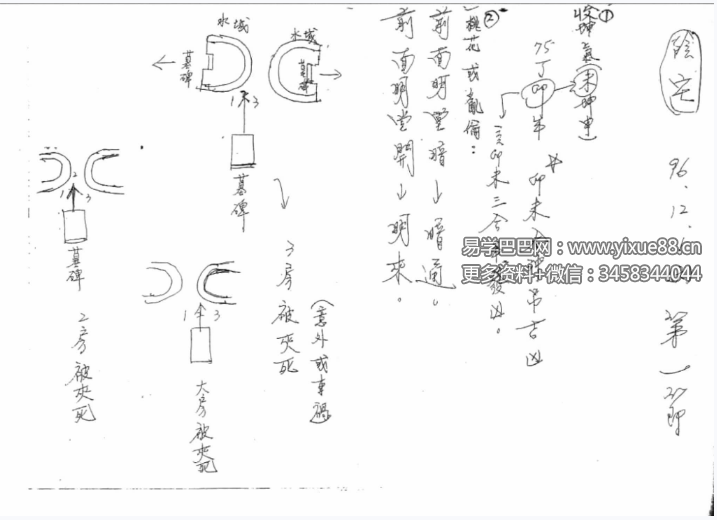 陰宅
96.12.
第一節
①
收坤氣(未坤申)
75丁卯年
卯未
吉凶
亥卯未三合
凶。
②桃花或亂倫:
前面明堂暗→暗通。
前面明堂開→明來。
水城
墓碑
水城
墓碑
1 3
墓碑
3房被夾死
(意外或車禍)
1 2 3
墓碑
2房被夾死
1 3
大房被夾死
易学巴巴网:www.yixue88.cn
更多资料+微信:3458344044